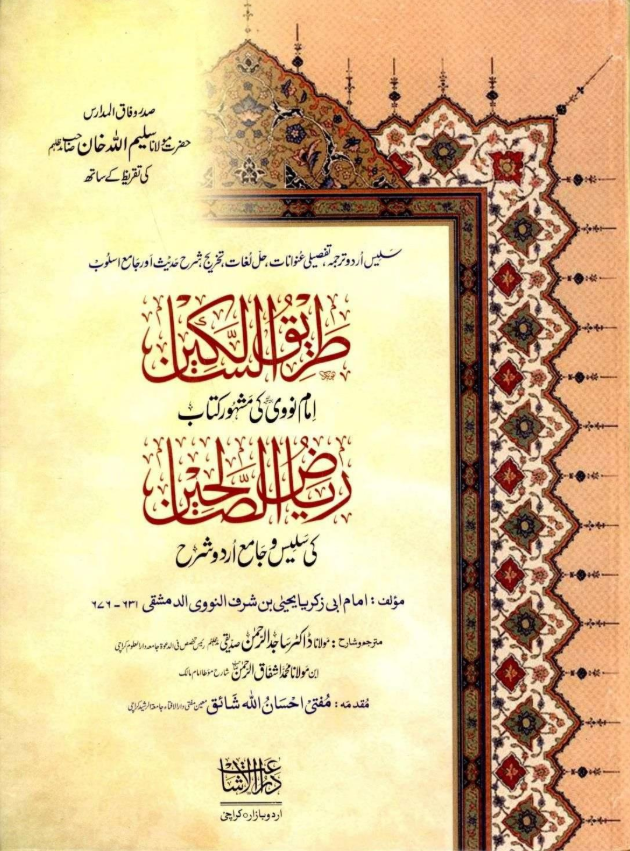 صدر وفاق المدارس
حضرت مولانا سلیم اللہ خان صاحب
کی تقریظ کے ساتھ
سلیس اُردو ترجمہ، تفصیلی عنوانات، حل لغات، تخریج، شرح حدیث اور جامع اسلوب
طریق السالکین
امام نووی کی مشہور کتاب
ریاض الصالحین
کی سلیس و جامع اُردو شرح
مؤلف: امام ابی زکریا یحیٰی بن شرف النووی الدمشقی ۶۳۱ - ۶۷۶
مترجم و شارح: مولانا ڈاکٹر ساجد الرحمٰن صدیقی رئیس تخصص فی الدعوۃ جامعہ دارالعلوم کراچی
ابن مولانا محمد اشفاق الرحمٰن شارح مؤطا امام مالک
مُقدمہ: مُفتی احسانُ اللہ شائق معین مفتی دارالافتاء جامعۃ الرشید کراچی
دارالاشاعت
اردو بازار کراچی